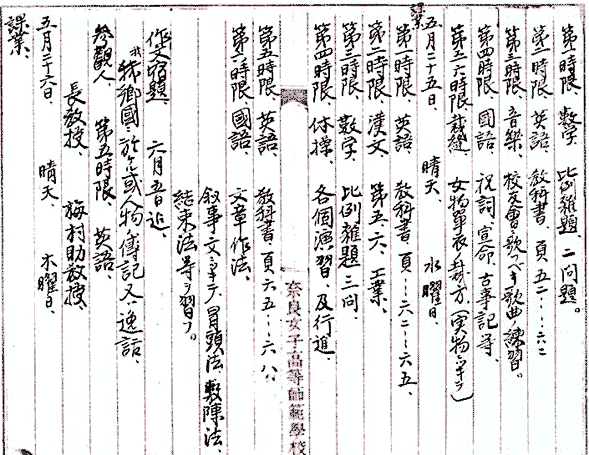 第一時限、数学、比例雑題、二問題。
第二時限、英語、教科書、頁五二——六二
第三時限、音樂、校友會ニ歌フベキ歌曲ノ練習。
第四時限、國語、祝詞、宣命、古事記等、
第五六時限、裁縫、女物單衣ノ裁方(実物ニテ)
五月二十五日、晴天、水曜日、
課業、
第一時限、英語、教科書、頁——六二——六五、
第二時限、漢文、第五、六、工業、
第三時限、数学、比例雑題、三問、
第四時限、体操、各個演習、及行進、
奈良女子高等師範學校
第五時限、英語、教科書、頁六五——六八、
第六時限、國語、文章作法、
叙事文ニ就テ、冒頭法、敷陳法、
結束法等ヲ習フ。
作文宿題、六月五日迄、
我郷國ニ於ケル或人物ノ傳記又ハ逸話、
参觀人、第五時限、英語、
長教授、梅村助教授、
五月二十六日、晴天、木曜日、
課業、